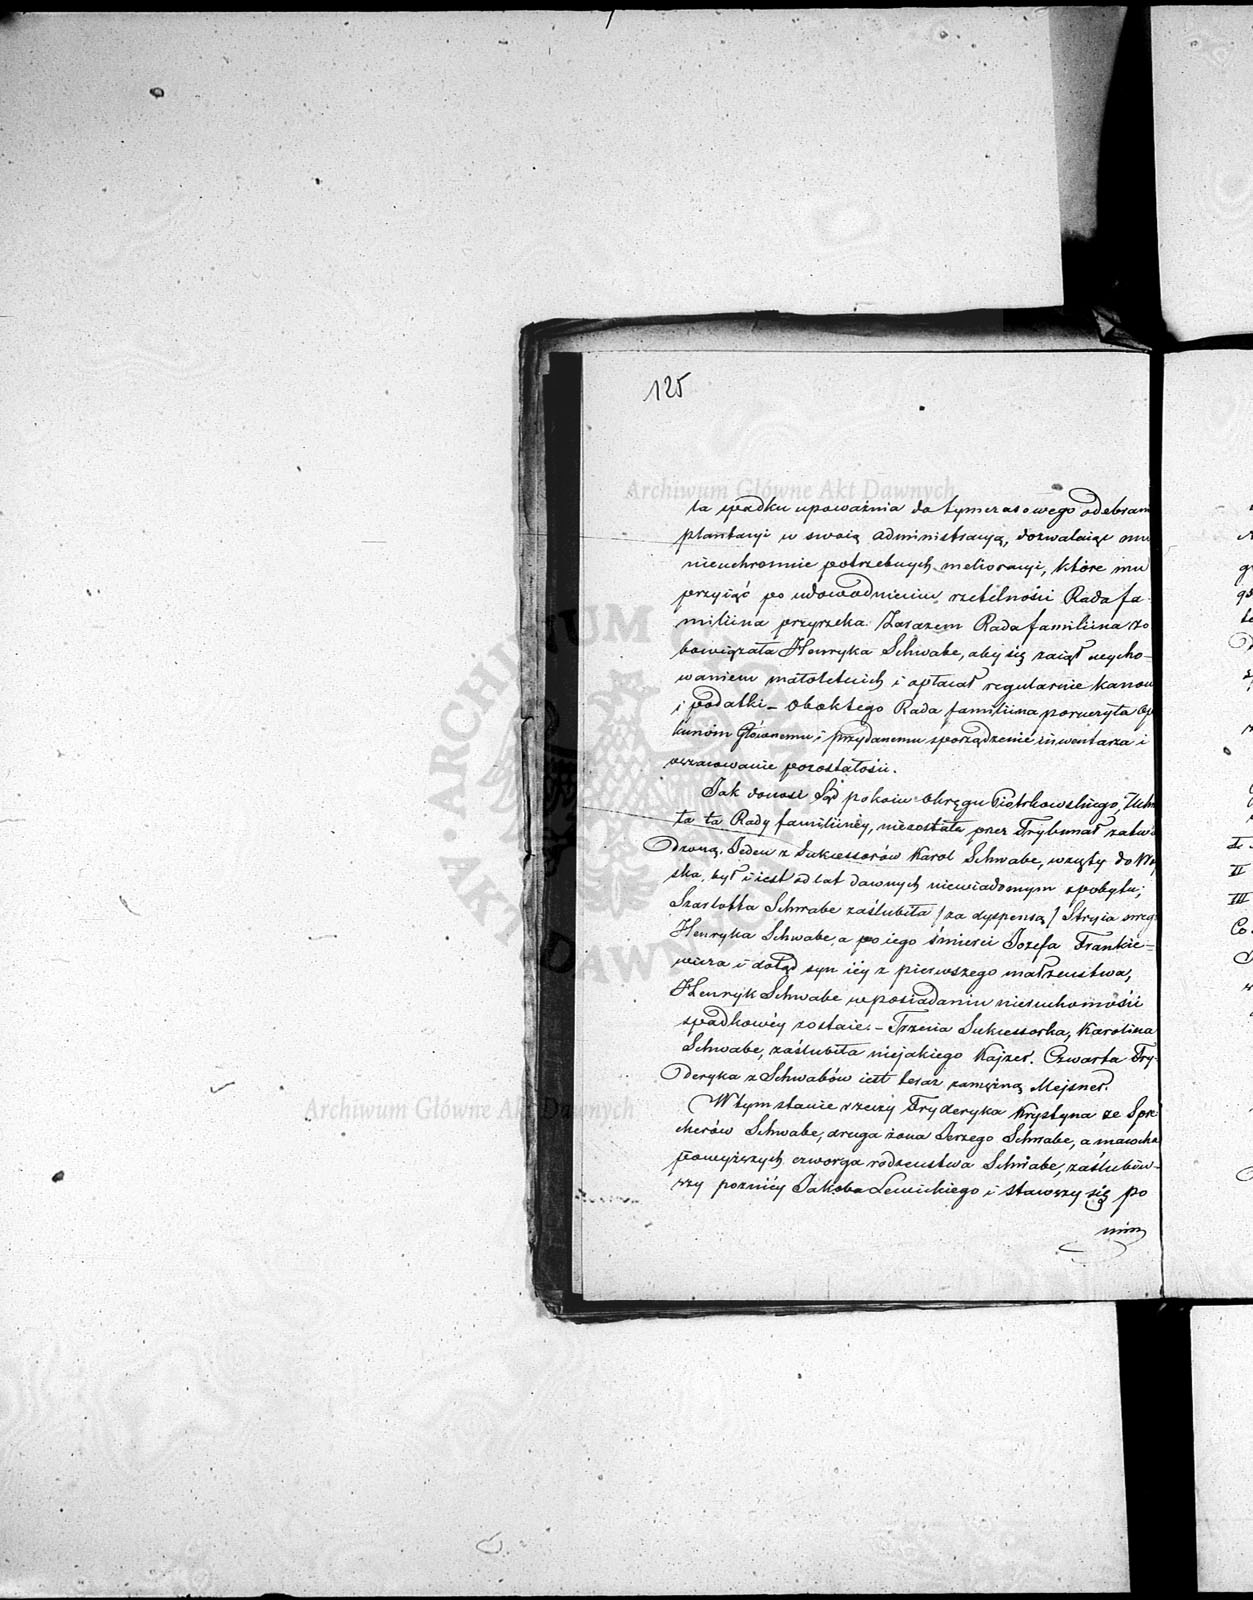 125
Archiwum Główne Akt Dawnych
ta spadku upoważnia do tymczasowego odebran
plantacyi w swoią administracyą, dozwalaiąc mu
nieuchronnie potrzebnych melioracyi, które mu
przyiąć po udowodnieniu rzetelności Rada fa-
miliina przyrzeka. Zarazem Rada familiina zo
bowiązała Henryka Schwabe, aby się zaiął wycho-
waniem małoletnich i opłacał regularnie kanon
i podatki – obok tego Rada familiina poruczyła Op
kunom Głównemu i przydanemu sporządzenie inwentarza i
oszacowanie pozostałości.
Jak donosi Sąd pokoiu okręgu Piotrkowskiego, Uchw
ta ta Rady familiinéy, niezostała przez Trybunał zatwi
dzoną. Jeden z Sukcessorów Karol Schwabe, wzięty do Woy
ska, był i iest od lat dawnych niewiadomym z pobytu;
Szarlotta Schwabe zaślubiła /za dyspensą/ Stryia sweg
Henryka Schwabe, a po iego śmierci Jozefa Frankie-
wicza i dotąd syn iéy z pierwszego małżeństwa,
Henryk Schwabe w posiadaniu nieruchomości
spadkowéy zostaie. – Trzecia Sukcessorka, Karolina
Schwabe, zaślubiła niejakiego Kajzer. Czwarta Fry-
deryka z Schwabów iest teraz zamężną Mejsner.
W tym stanie rzeczy Fryderyka Krystyna ze Szpi
cherów Schwabe, druga żona Jerzego Schwabe, a macocha
powyższych czworga rodzeństwa Schwabe, zaślubiw-
szy poznićy Jakoba Lewickiego i stawszy się po
nim
Archiwum Główne Akt Dawnych
ARCHIWUM
AKT DAWNYCH
I
II
III
Co